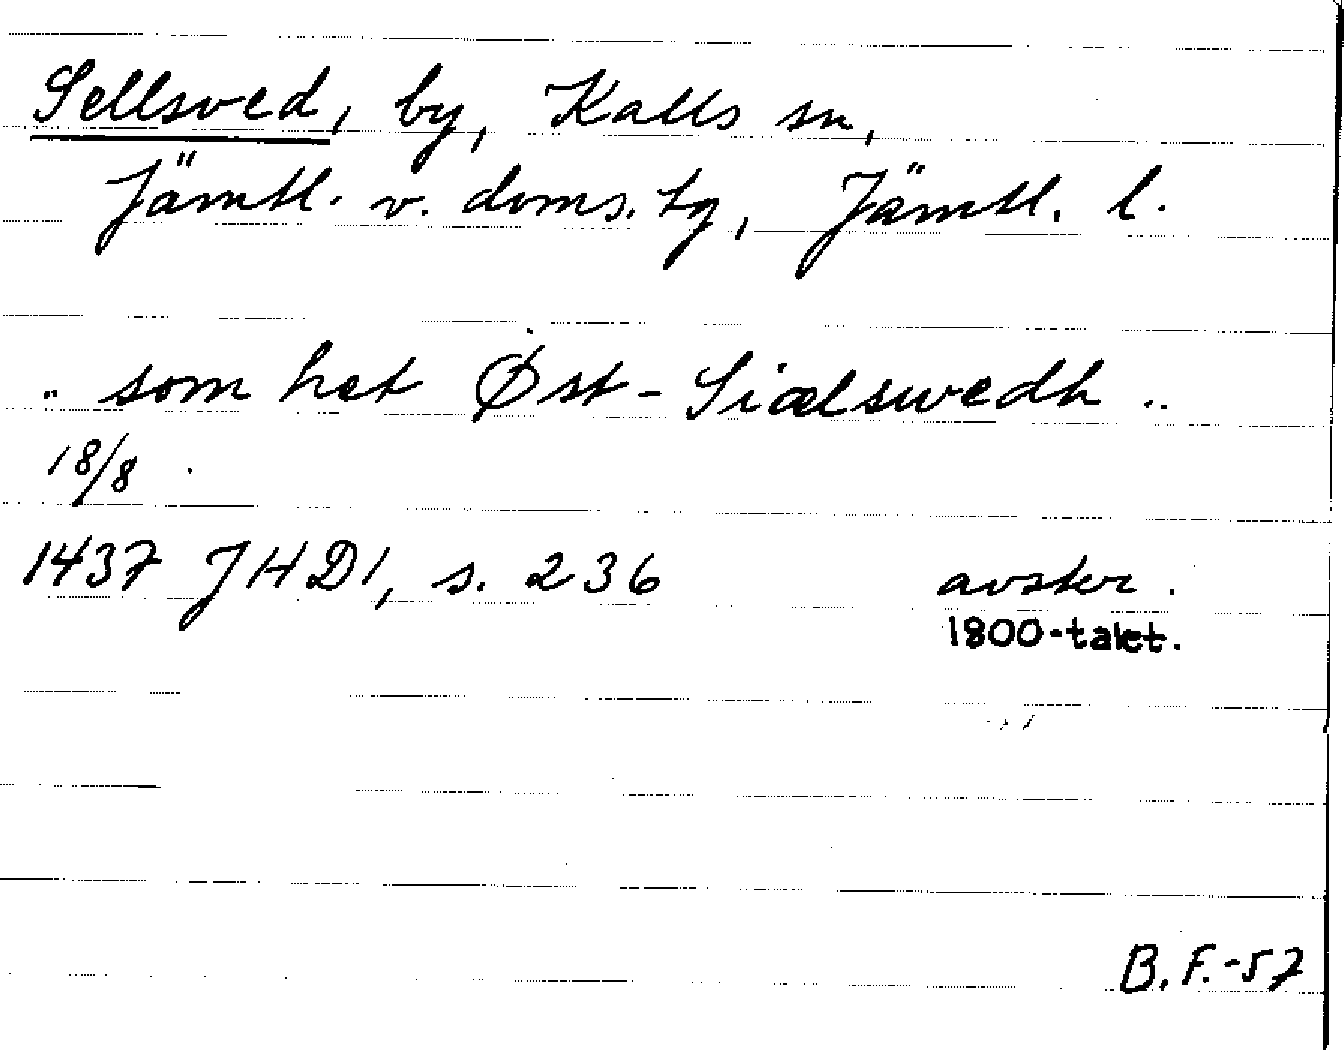 Sellsved, by, Kalls sn,
Jämtl. v. doms. tg, Jämtl. l.
.. som het Øst-Siælswedh ..
18/8
1437 JHD1, s. 236 avskr.
1800-talet.
B.F.-57